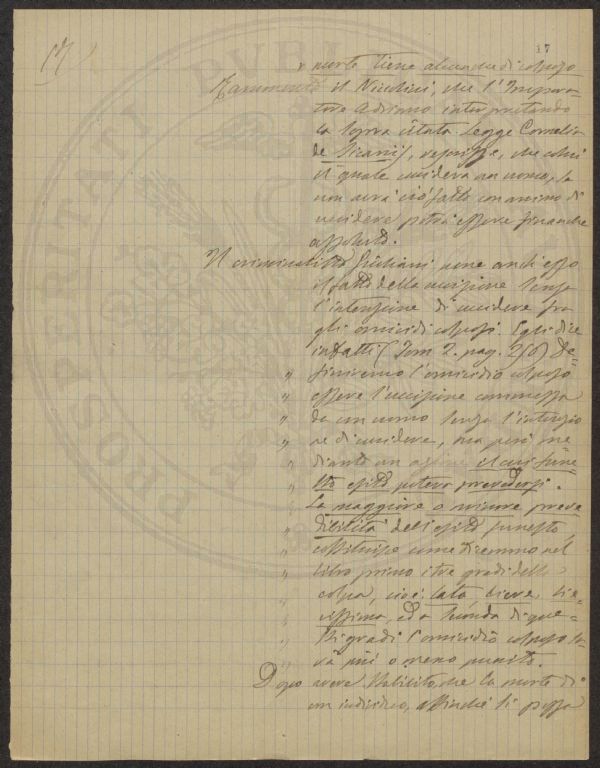 17
17
" morte tiene alcunche di colposo
Rammentò il Nicolini, che l'Impera-
tore Adriano interpretando
la sopra citata Legge Cornelia
de Sicariis, rescrisse, che colui
il quale uccideva un uomo, se
non avrà ciò fatto con animo di
uccidere potrà essere finanche
assoluto.
Il criminalista Giuliani pone anch'esso
il fatto della uccisione senza
l'intenzione di uccidere fra
gli omicidi colposi. Egli dice
infatti (Tom 2. pag. 260) De-
" finiremo l'omicidio colposo
" essere l'uccisione commessa
" da un uomo senza l'intenzio
" ne di uccidere, ma però me
" diante un azione il cui fune-
" sto esito poteva prevedersi.
" La maggiore o minore preve
" dibilità dell'esito funesto,
" costituisce come dicemmo nel
" libro primo i tre gradi della
" colpa, cioè lata, lieve lie-
" vissima, ed a seconda di que-
" sti gradi l'omicidio colposo sa-
" rà più o meno punito.
Dopo avere stabilito, che la morte di
un individuo, affinchè si possa